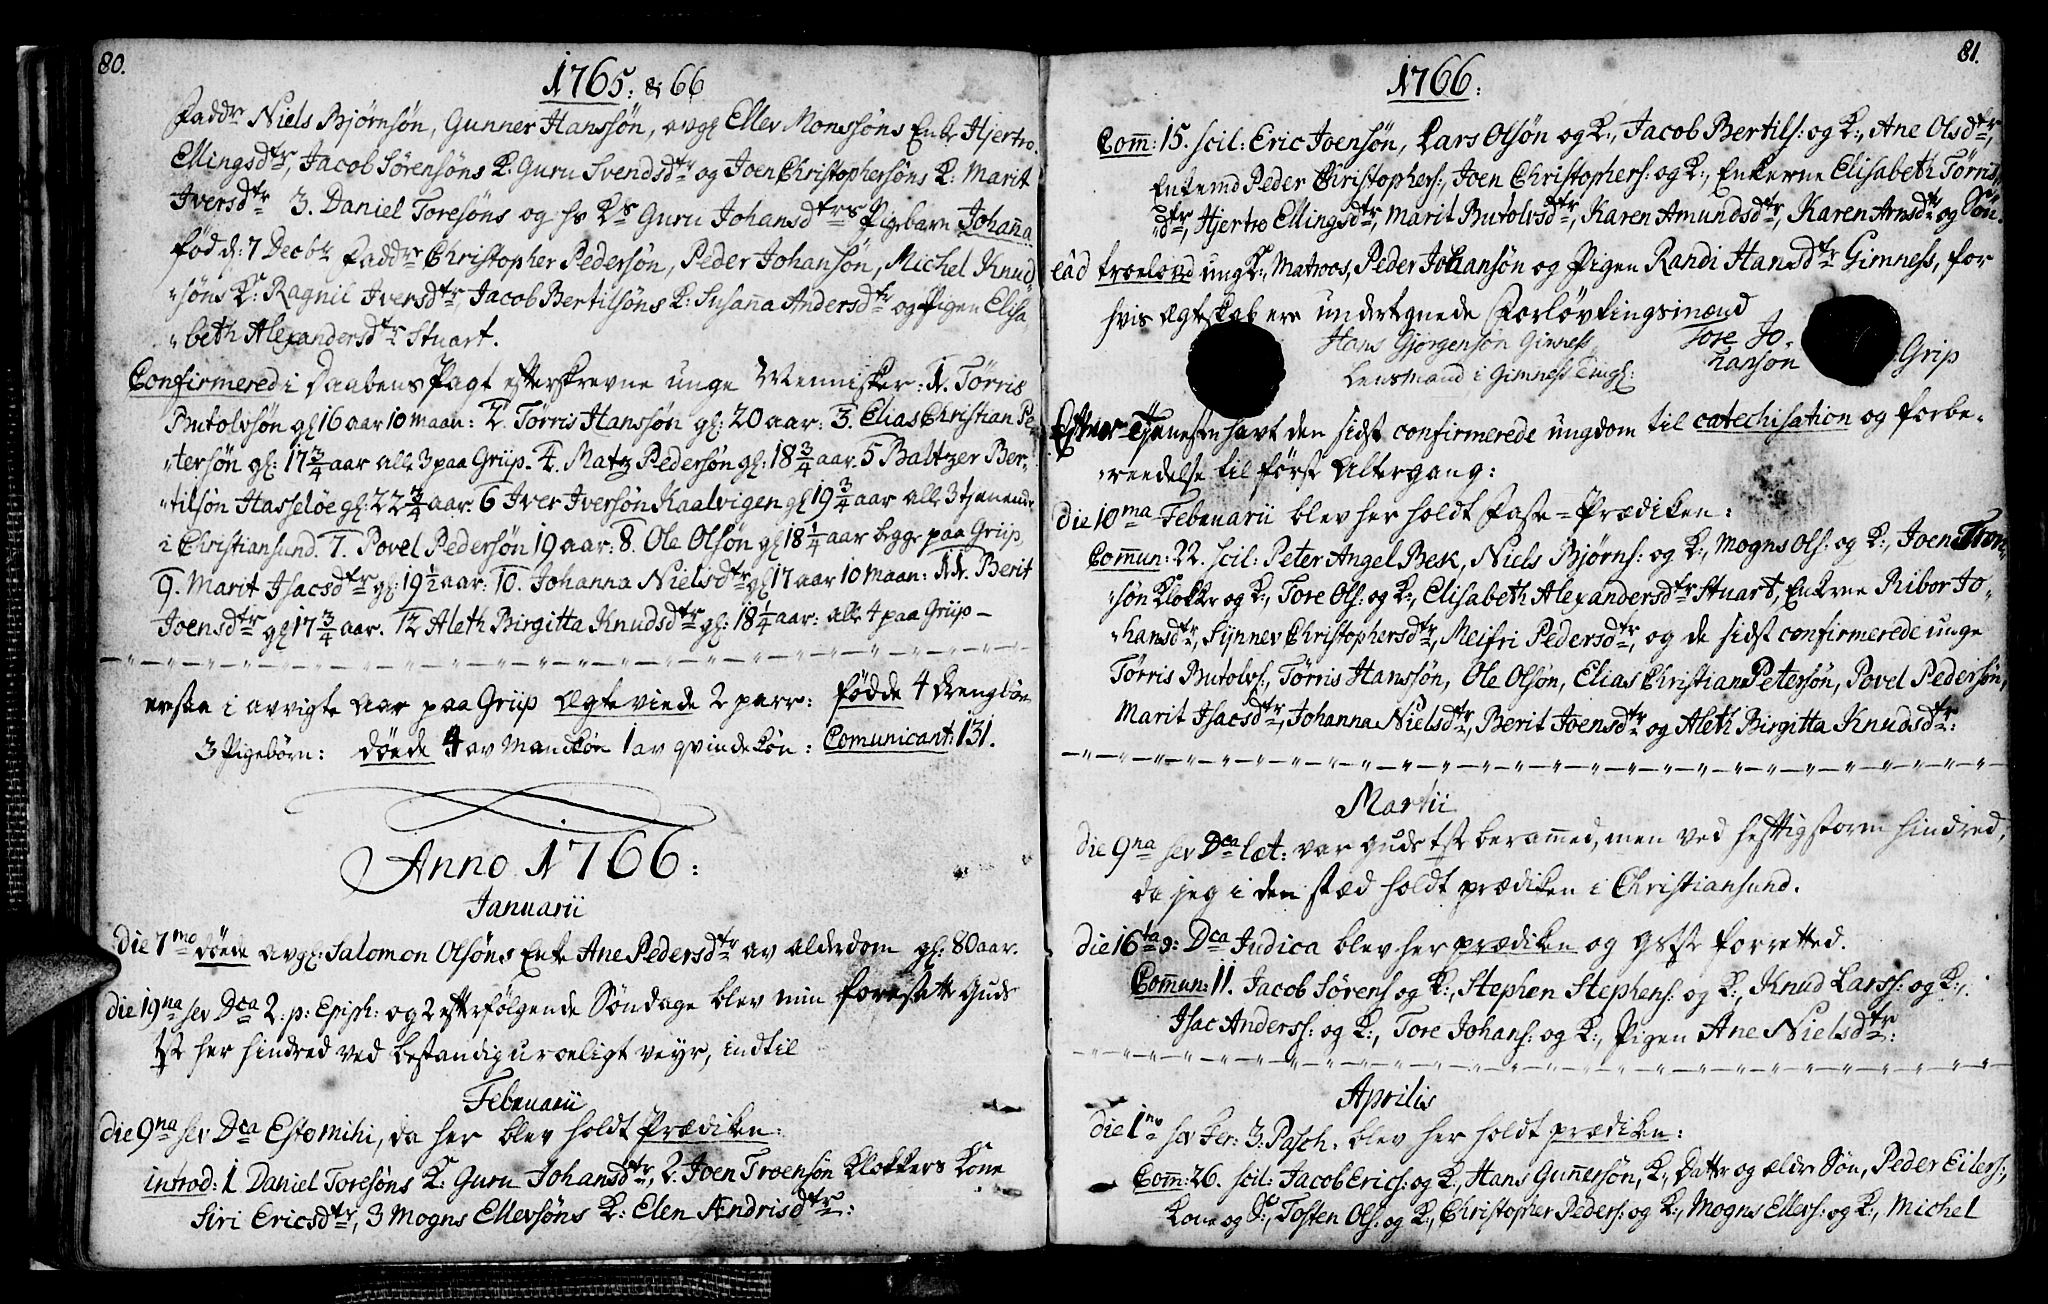 80.
1765: & 66
Faddr Niels Bjørnsøn, Gunner Hanssøn, avgl Ellev Monssøns Enke Hjertro
Ellingsdtr, Jacob Sørensøns K. Guru Svendsdtr og Joen Christophersøns K: Marit
Iversdtr 3. Daniel Toresøns og hs Ks Guru Johansdtrs Pigebarn Johanna
fød d: 7 Decbr Faddr Christopher Pedersøn, Peder Johansøn, Michel Knud
"søns K: Ragnil Iversdtr, Jacob Bertilsøns K: Susanna Andersdtr og Pigen Elisa
"beth Alexandersdtr Stuart.
Confirmered i Daabens Pagt efterskrevne unge Mennisker: 1. Tørris
Butolvsøn gl 16 aar 10 maan: 2. Tørris Hanssøn gl: 20 aar: 3. Elias Christian Pe
"tersøn gl: 17 3/4 aar alle 3 paa Griip. 4. Matz Pedersøn gl: 18 3/4 aar. 5 Baltzer Ber-
"tilsøn Hasseløe gl: 22 3/4 aar. 6 Iver Iversøn Kaalvigen gl 19 3/4 aar alle 3 tjenende
i Christiansund. 7. Povel Pedersøn 19 aar: 8. Ole Olsøn gl 18 1/4 aar begge paa Griip,
9. Marit Isacsdtr gl: 19 1/2 aar: 10. Johanna Nielsdtr gl 17 aar 10 maan: 11. Berit
Joensdtr gl 17 3/4 aar. 12 Aleth Birgitta Knudsdtr gl: 18 1/4 aar: alle 4 paa Griip-
ersaa i avvigte Aar paa Griip Ægteviede 2 parr: fødde 4 drengbørn
3 Pigebørn: døede 4 av Mandkøn 1 av qvindekøn: Comunicant: 131.
Anno 1766:
Januarii
die 7mo døede avgl: Salomon Olsøns Enke Ane Pedersdtr av alderdom gl: 80 aar.
die 19na sev Dca 2: p: Epiph: og 2 efterfølgende Søndage blev min foresatte Guds
tst her hindred ved bestandig uroeligt veyr, indtil
Februarii
die 9na sev Dca Estomihi, da her blev holdt Prædiken:
introd: 1 Daniel Toresøns K: Guru Johansdtr, 2. Joen Troensøn Klokkers Kone
Siri Ericsdtr, 3 Mogns Ellevsøns K: Elen Ændrisdtr:
81.
1766:
Com: 15. scil: Eric Joensøn, Lars Olsøn og K:, Jacob Bertils: og K:, Ane Olsdtr,
Enkemd Peder Christophers:, Joen Christophers: og K:, Enkerne Elisabeth Tørris,
"dtr, Hjertro Ellingsdtr, Marit Butolvsdtr, Karen Amundsdtr, Karen Arnsdtr og Søn.
eâd troelovd ungK:, Matroos, Peder Johansøn og Pigen Randi Hansdtr Gimness, for
hvis Ægteskab ere undertegnede Forløvtingsmænd
Hans Gjørgensøn Gimness Tore Jo,
Lensmand i Gimness Tingl: hansøn Grip
Efter Tjenesten havt den sidst confirmerede ungdom til catechisation og forbe-
"reedelse til første Altergang:
die 10ma Februarii blev her holdt Faste=Prædiken:
Commun: 22. scil: Peter Angel Bek, Niels Bjørns: og K:, Mogns Ols: og K:, Joen Tron,
"søn Klokker og K:, Tore Ols: og K:, Elisabeth Alexandersdtr Stuart, Enkerne Ribor Jo,
"hansdtr, Synnev Christophersdtr, Meisri Pedersdtr, og de sidst confirmerede unge
Tørris Butolvs:, Tørris Hanssøn, Ole Olsøn, Elias Christian Petersøn, Povel Pedersøn,
Marit Isacsdtr, Johanna Nielsdtr, Berit Joensdtr og Aleth Birgitta Knudsdtr:
Martii
die 9na sev Dca Læt: var Guds tst berammed, men ved heftig storm hindred,
da jeg i den stæd holdt prædiken i Christiansund.
die 16ta s: Dca Judica blev her prædiken og Gstst forretted.
Commun: 11. Jacob Sørens og K:, Stephen Stephens: og K:, Knud Larss: og K:,
Isac Anderss: og K:, Tore Johans: og K:, Pigen Ane Nielsdtr:
Aprilis
die 1mo sev Fer: 3: Pasch. blev her holdt prædiken:
Com: 26. scil: Jacob Erics: og K:, Hans Gunnersøn, K:, Dattr og ældr Søn, Peder Eilers:,
Kone og S:, Tosten Ols: og K:, Christopher Peders: og K:, Mogns Ellevs: og K:, Michel